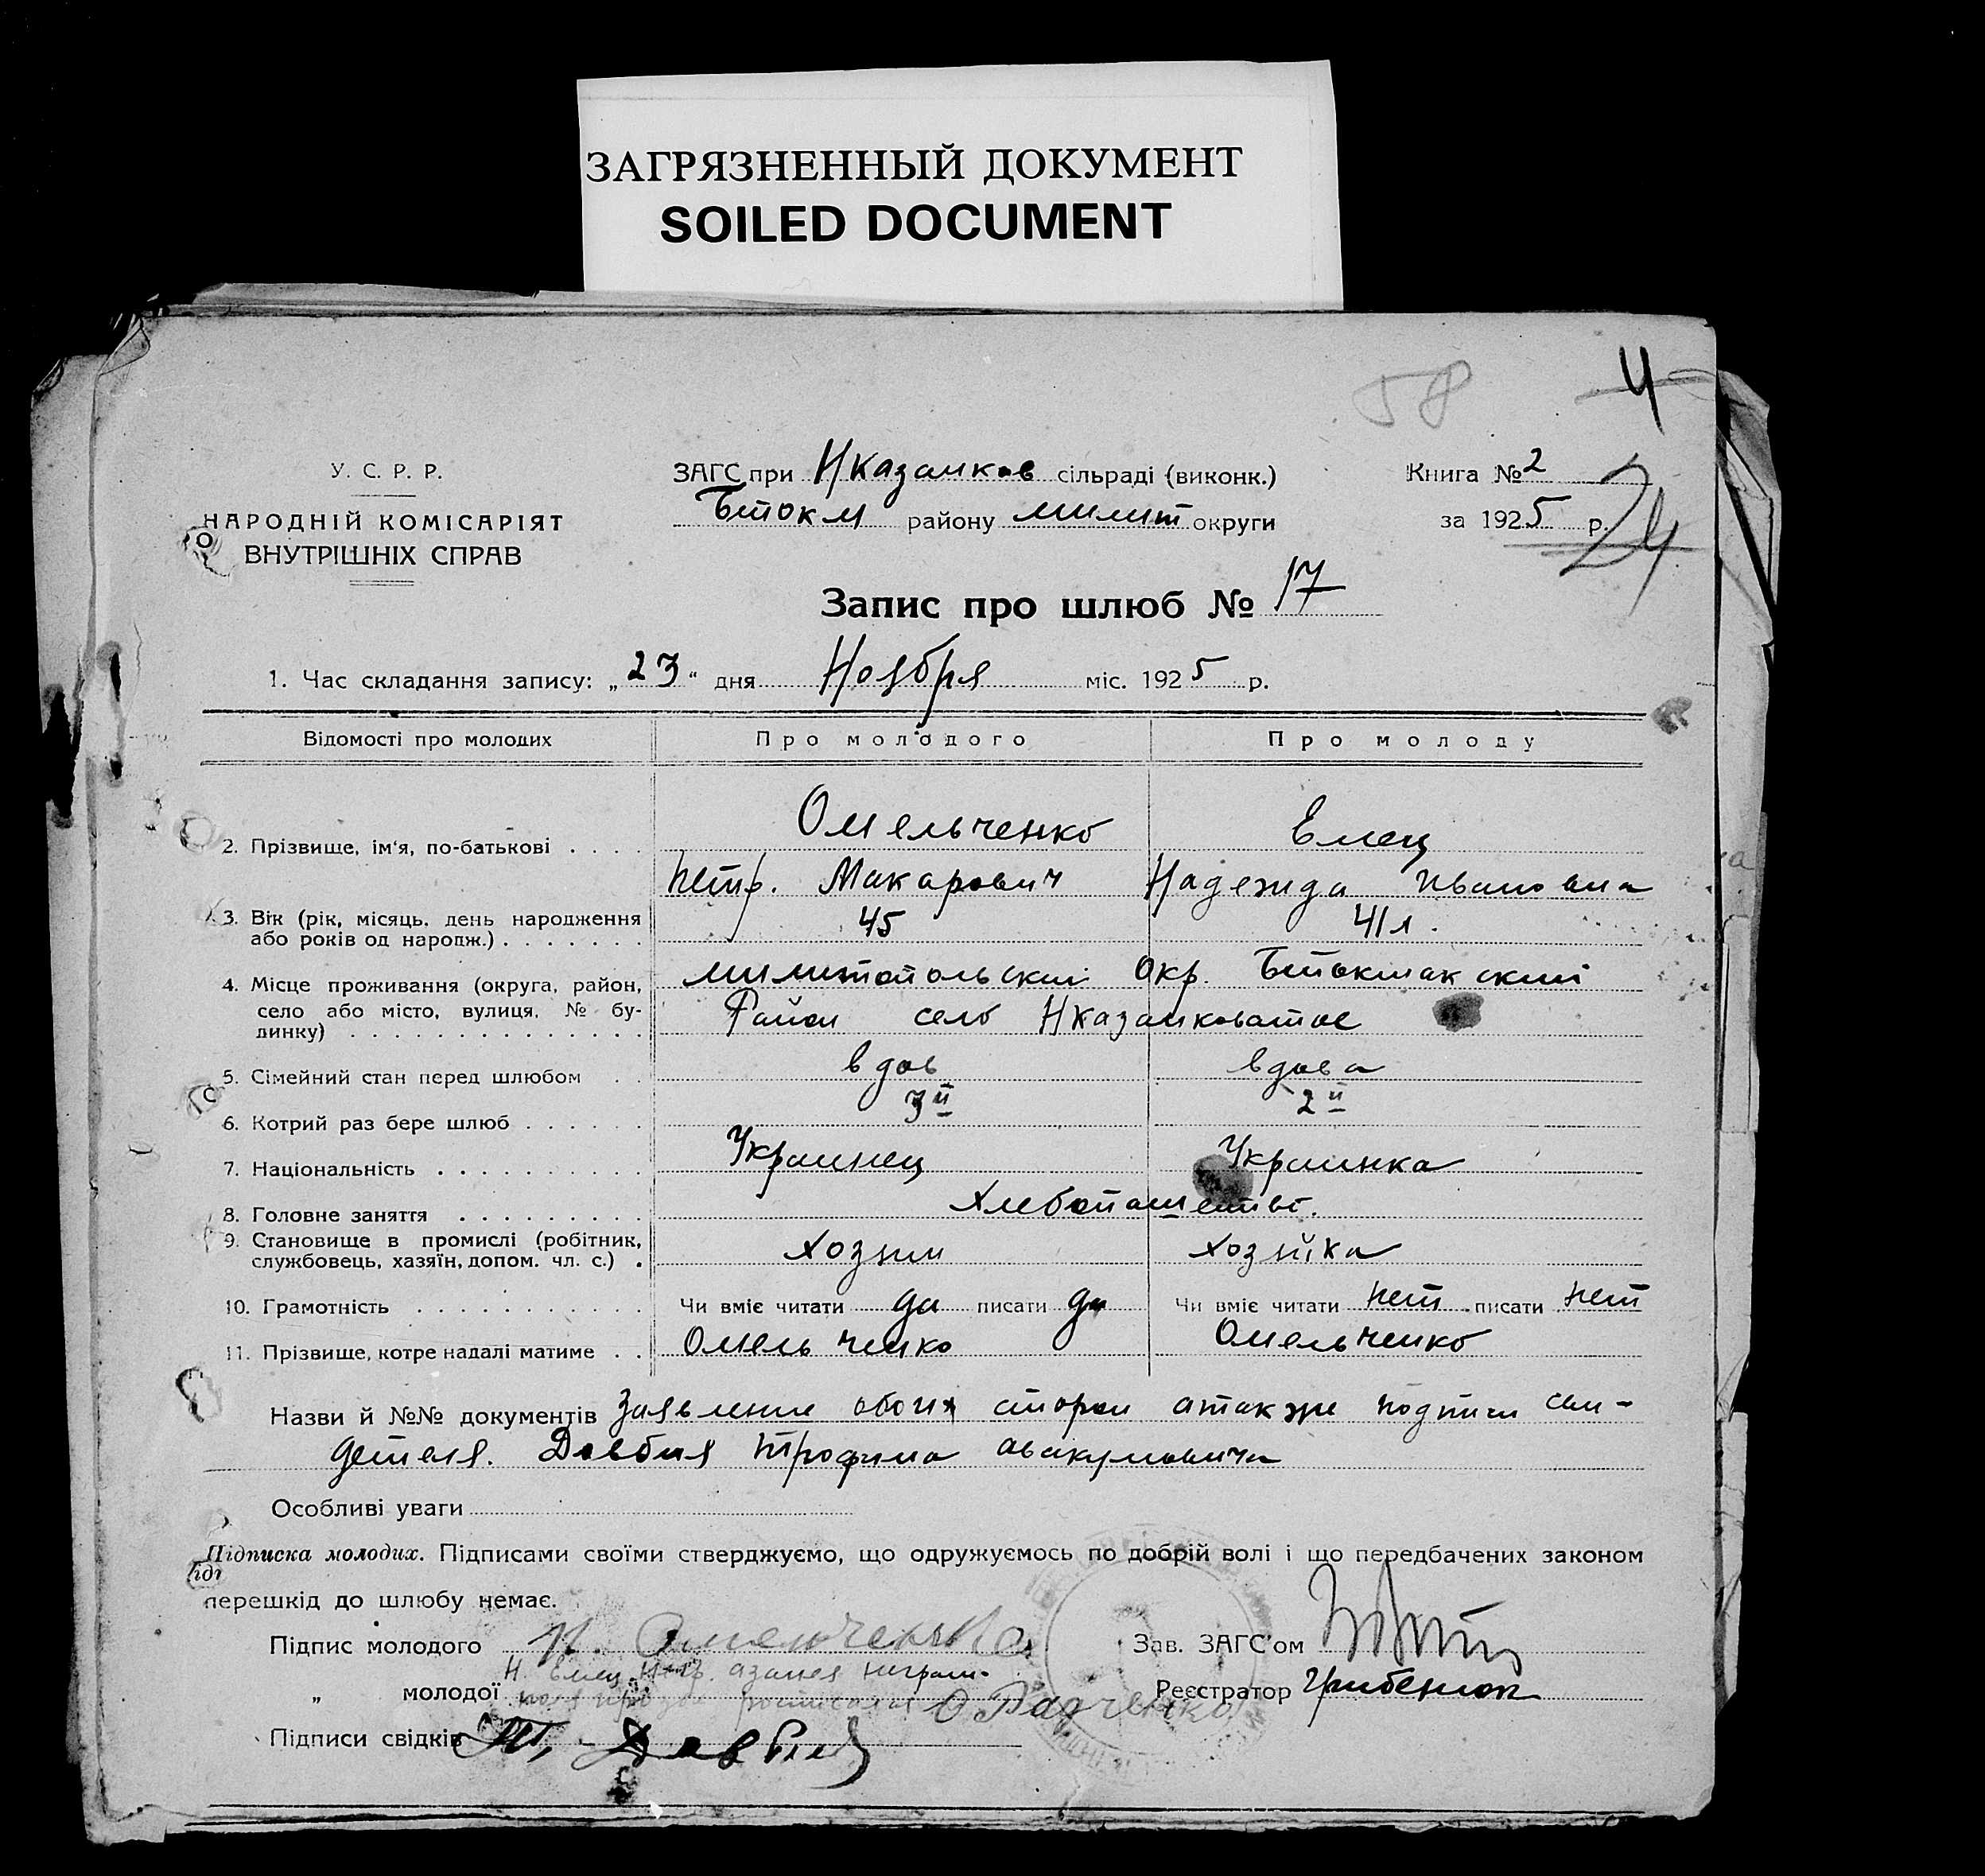 ЗАГРЯЗНЕННЫЙ ДОКУМЕНТ
SOILED DOCUMENT
58 4
У. С. Р. Р.
НАРОДНІЙ КОМІСАРІЯТ
ВНУТРІШНІХ СПРАВ
ЗАГС при Нказанков сільраді (виконк.)
Бток м району милит округи
Книга № 2
за 1925 р.
24
Запис про шлюб № 17
1. Час складання запису: „23" дня Ноября міс. 1925 р.
Відомості про молодих Про молодого Про молоду
2. Прізвище, ім'я, по-батькові . . . . Омельченко Емец
Петр. Макарович Надежда Ивановна
3. Вік (рік, місяць, день народження 45 41 л.
або років од народж.) . . . . . . .
4. Місце проживання (округа, район, милитопольский Окр. Бтокмакский
село або місто, вулиця, № бу- Район село Нказанковатое
динку) . . . . . . . . . . . . . .
5. Сімейний стан перед шлюбом . . вдов вдова
6. Котрий раз бере шлюб . . . . . . 3й 2й
7. Національність . . . . . . . . . . Украинец Украинка
8. Головне заняття . . . . . . . . . Хлебопашеств.
9. Становище в промислі (робітник, Хозяин Хозяйка
службовець, хазяїн, допом. чл. с.) .
10. Грамотність . . . . . . . . . . . Чи вміє читати да писати да Чи вміє читати нет писати нет
11. Прізвище, котре надалі матиме . . Омельченко Омельченко
Назви й №№ документів Заявление обоих сторон атакже подписи сви-
детеля. Довбия Трофима авакумовича
Особливі уваги
Підписка молодих. Підписами своїми стверджуємо, що одружуємось по добрій волі і що передбачених законом
перешкід до шлюбу немає.
Підпис молодого П. Омельченко Зав. ЗАГС'ом
Н. Емец
„ молодої О Радченко Реєстратор Грибенюк
Підписи свідків Т. Довбия